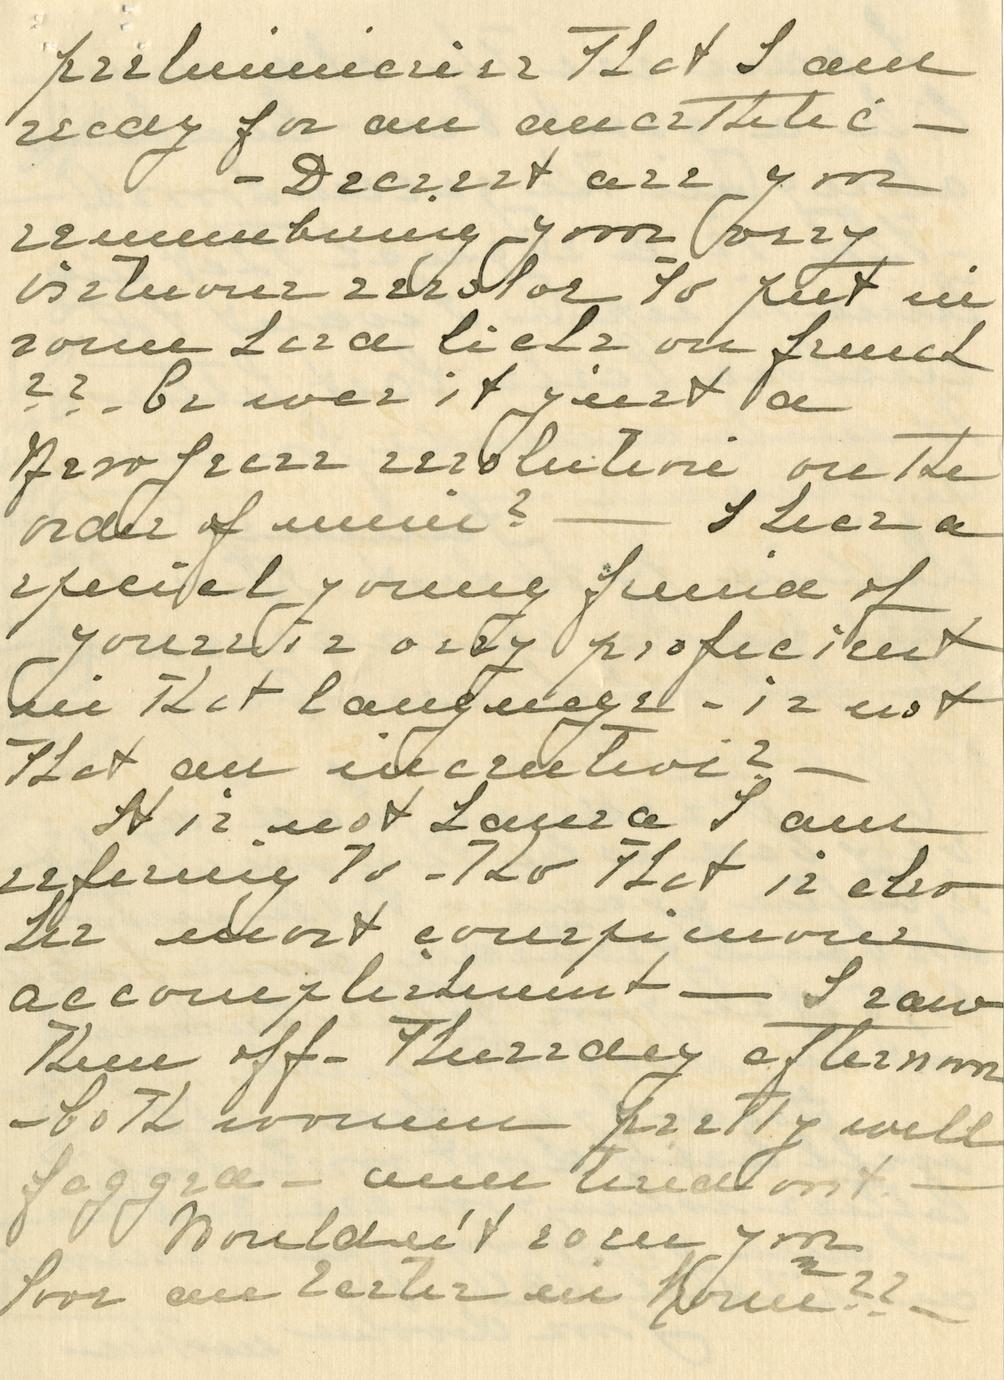 preliminaries that I am
ready for an anesthetic —
- Dearest are you
remembering your very
virtuous resolve to put in
some hard licks on french
??- Or was it just a
New Years resolution on the
order of mine? — I hear a
special young friend of
yours is very proficient
in that language - is not
that an incentive? —
It is not Laura I am
refering to - tho that is also
her most conspicuous
accomplishment — I saw
them off - Thursday afternoon
- both women pretty well
fagged - and tired out. —
Wouldn't some you
love an Easter in Rome??—